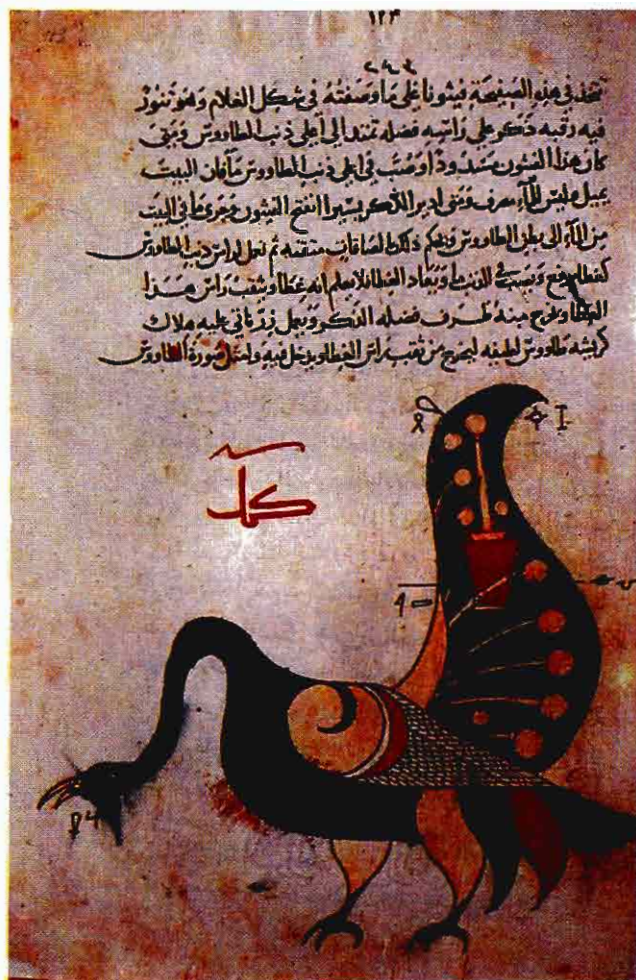 ١٢٤
تتخذ في هذه الصفيحة فيثونا على ما وصفته في شكل الغلام وهو
فيه رقبه ذكر على راسه فضله تمتد الى اعلى ذنب الطاووس ومتى
كان هذا الفيثون مسدودا وصب في اعلى ذنب الطاووس ما فان البيت
يمتلى وليس للماء مصرف ومتى ادير الذكر يسيرا انفتح الفيثون وجرى ما في البيت
من الماء الى بطن الطاووس ويحكم ذلك ثم لراس ذنب الطاووس
كغطا ويصب في الذنب ما ويعاد الغطا فلا يعلم انه غطا ويثقب راس هذا
الغطا ويخرج منه طرف فضله الذكر ويعمل زر ناتي عليه
كريشه طاووس لطيفه ليخرج من ثقب راس الغطا ويدخل فيه وامثل صورة الطاووس